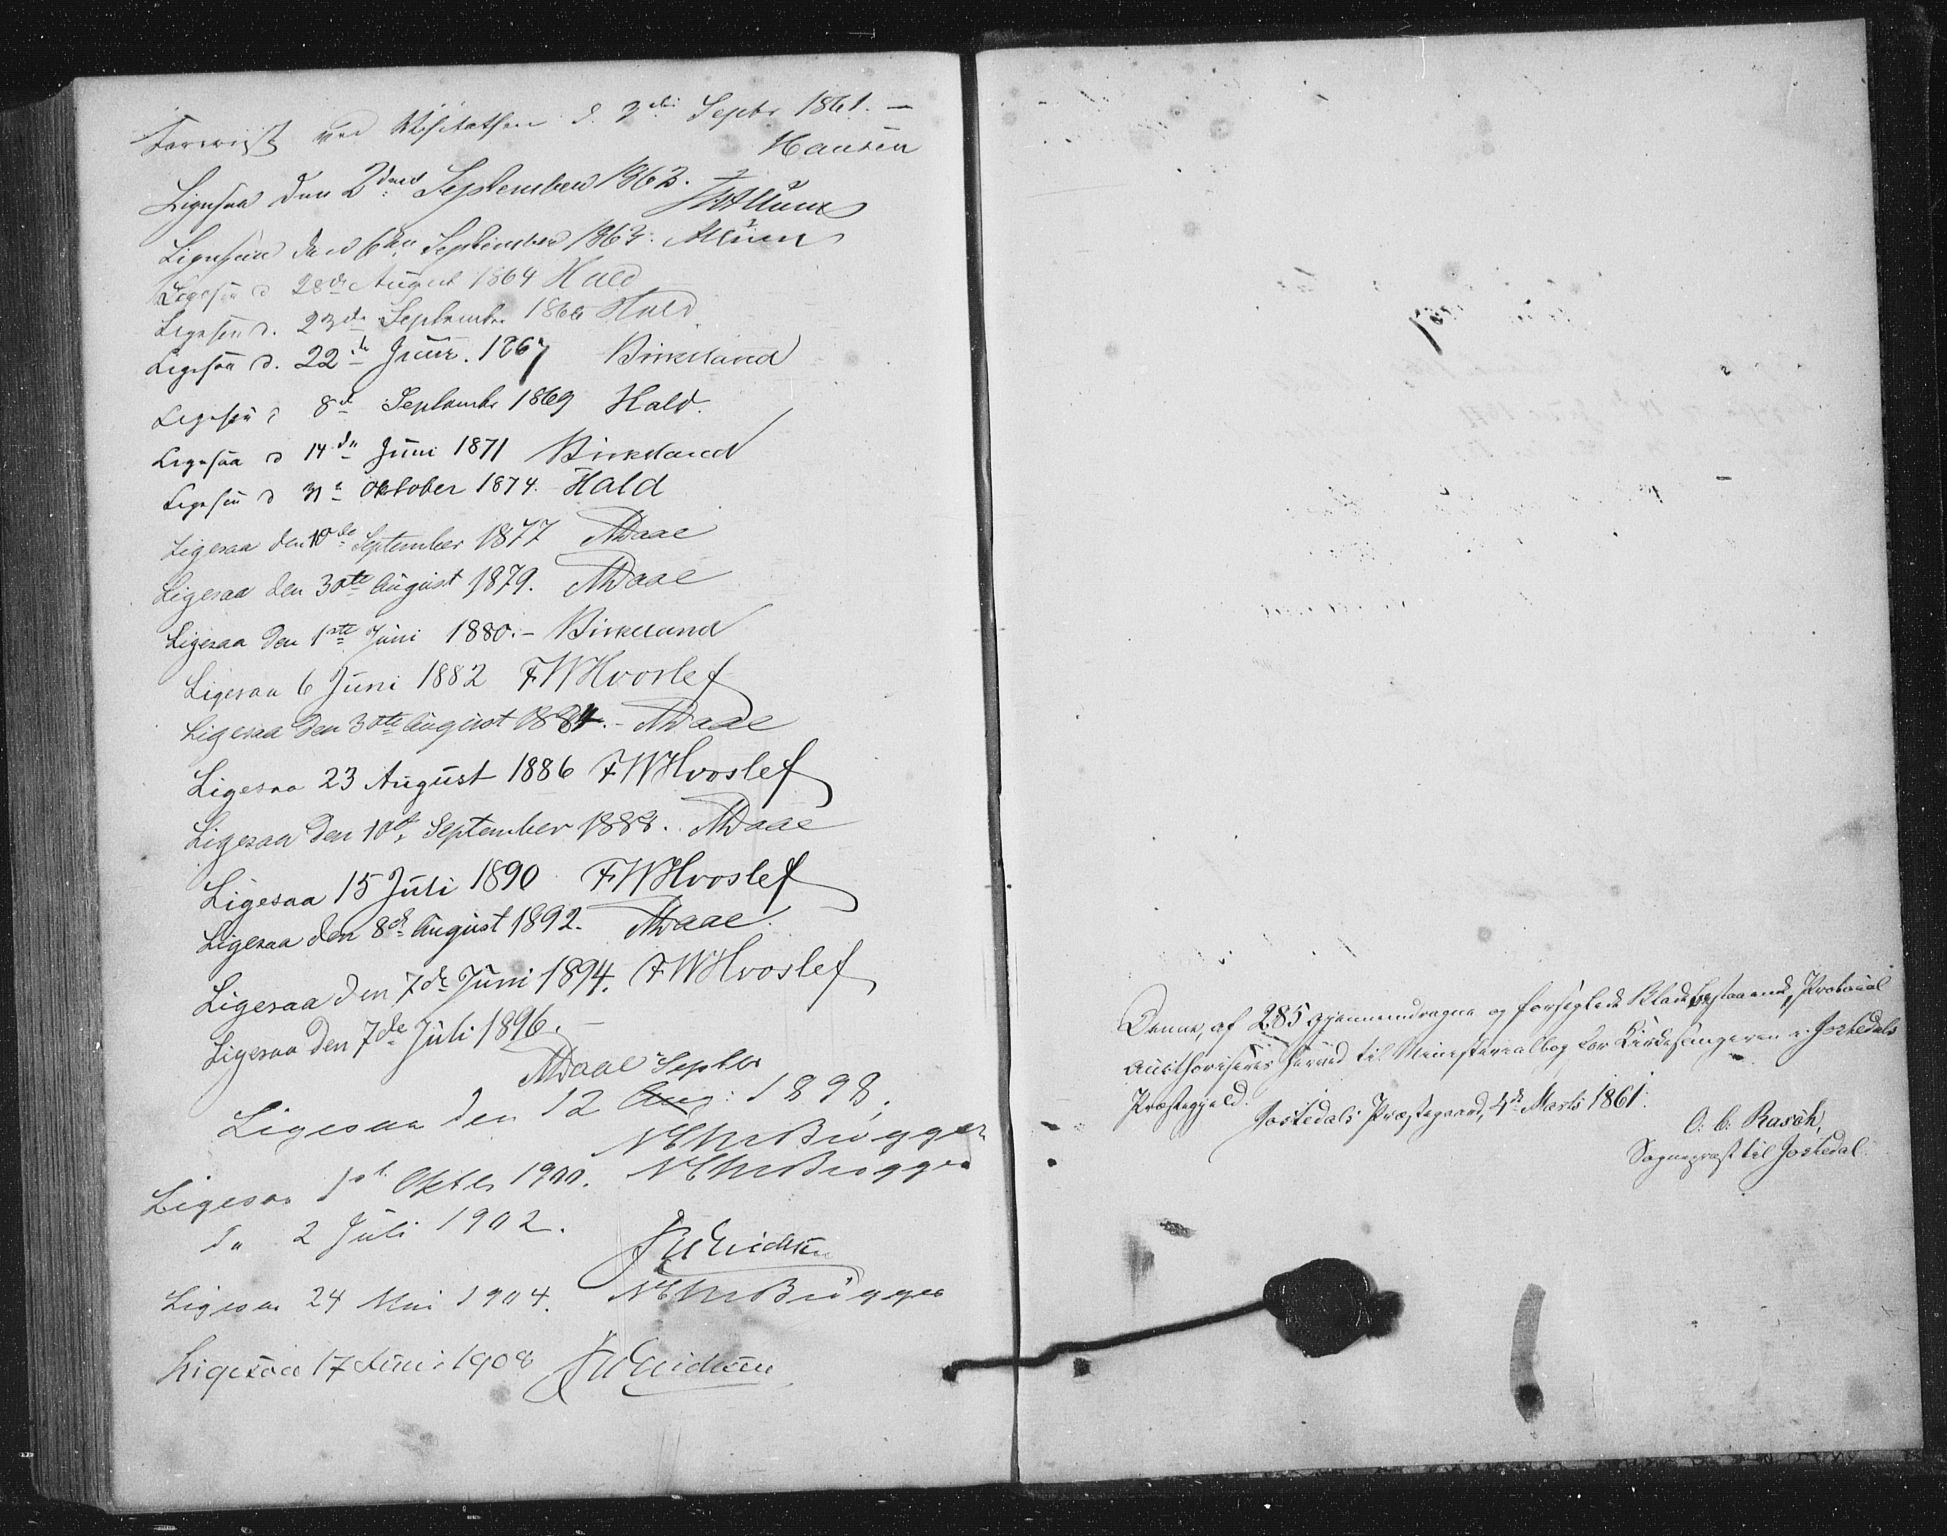 Forevist ved Visitatsen d. 3die Septbr 1861. —
Hansen
Ligesaa den 2den September 1862.
Ligesaa den 6te September 1863.
Ligesaa d 28de August 1864 Hald
Ligesaa d. 23de Septembr 1866 Hald
Ligesaa d. 22de Juni. 1867 Birkeland
Ligesaa d 8de Septembr 1869 Hald.
Ligesaa d 14de Juni 1871 Birkeland
Ligesaa d 31e Oktober 1874. Hald
Ligesaa den 10de September 1877 Daae
Ligesaa den 30te August 1879. Daae
Ligesaa den 1ste Juni 1880. – Birkeland
Ligesaa 6 Juni 1882 FWHvoslef
Ligesaa den 30te August 1884. – Daae
Ligesaa 23 August 1886 FWHvoslef
Ligesaa den 10de September 1888. Daae
Ligesaa 15 Juli 1890 FWHvoslef
Ligesaa den 8de August 1892. Daae.
Ligesaa den 7de Juni 1894. FWHvoslef
Ligesaa den 7de Juli 1896. –
Daae
Septbr
Ligesaa den 12 Aug: 1898.
Brøgger
Ligesaa 1st Oktbr 1900. Brøgger
do 2 Juli 1902.
JWEriksen
Ligesaa 24 Mai 1904. Brøgger
Ligesaa 17 Juni 1908 JWEriksen
Denne, af 285 gjennemdragne og forseglede Blade bestaaende, Protocol
authoriseres herved til Ministerialbog for Kirkesangeren i Jostedals
Præstegjeld.
Jostedals Præstegaard, 4de Marts 1861.
O. C. Rasch,
Sognepræst til Jostedal.